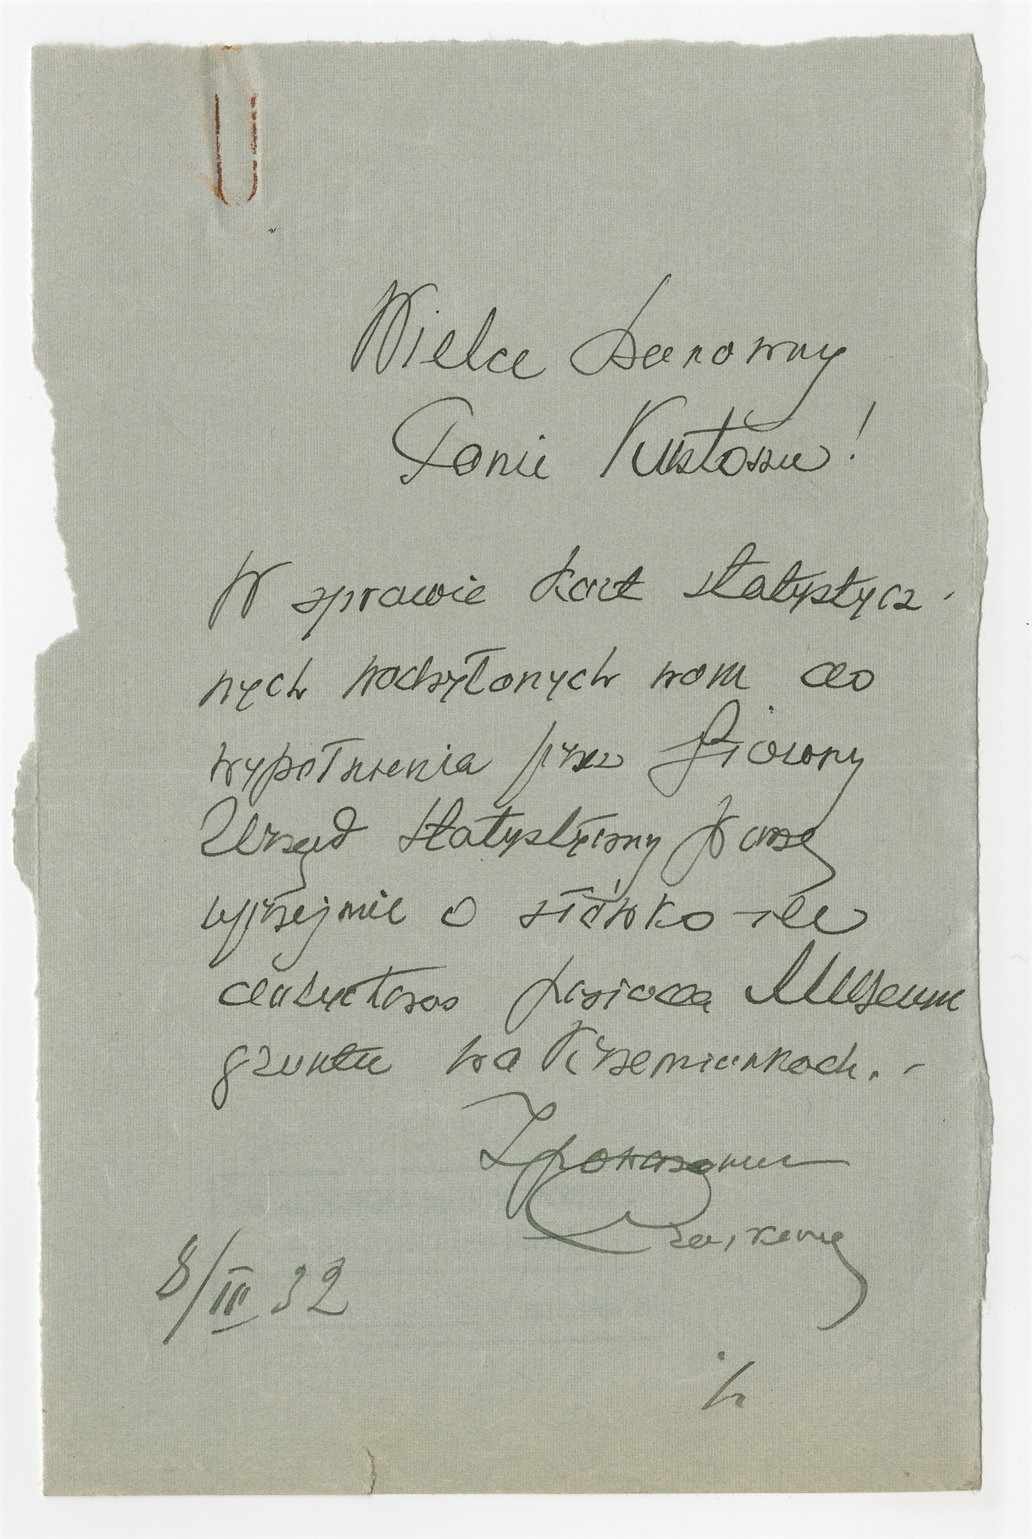 Wielce Szanowny
Panie Kustoszu!
W sprawie kart statystycz-
nych nadsyłanych nam do
wypełnienia przez Główny
Urząd Statystyczny proszę
uprzejmie o słówko - ile
dotychczas posiada Muzeum
gruntu na Krzemionkach. -
Z poważaniem
8/III 32